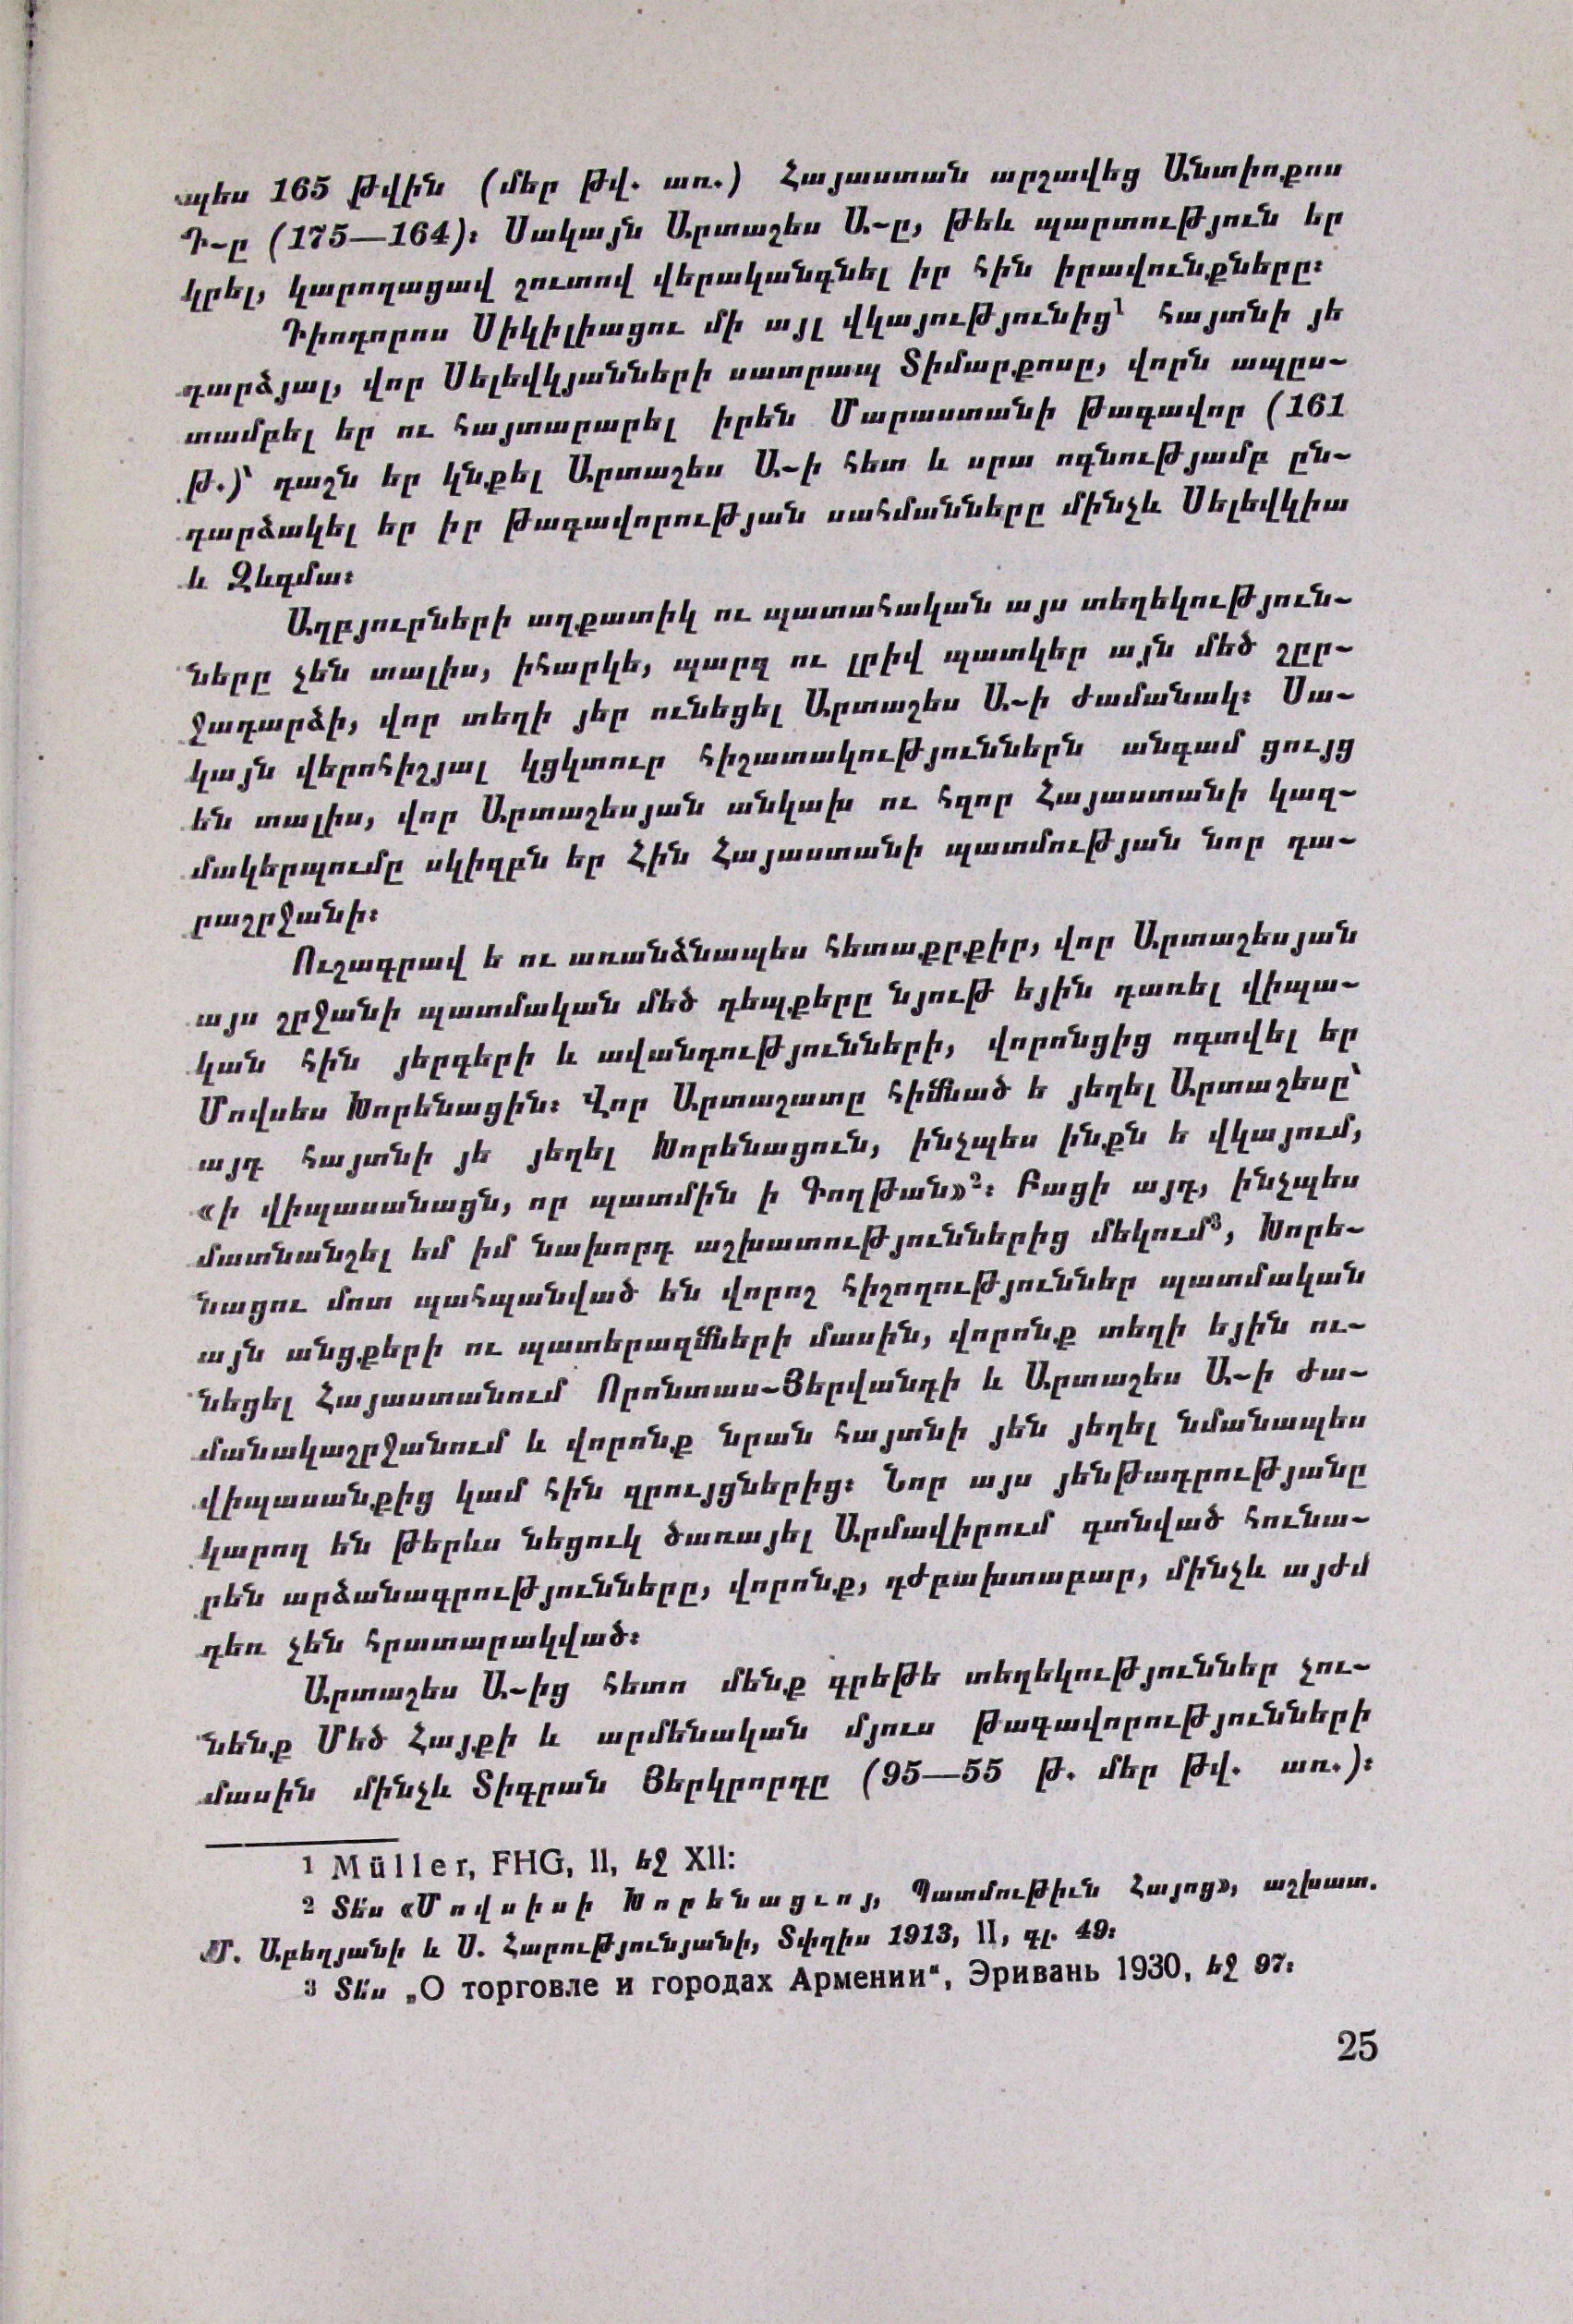 պես 165 թվին (մեր թվ. առ.) Հայաստան արշավեց Անտիոքոս
Դ-ը (175—164)։ Սակայն Արտաշես Ա-ը, թեև պարտություն եր
կրել, կարողացավ շուտով վերականգնել իր հին իրավունքները։
Դիոդորոս Սիկիլիացու մի այլ վկայությունից¹ հայտնի յե
դարձյալ, վոր Սելեվկյանների սատրապ Տիմարքոսը, վորն ապըս-
տամբել եր ու հայտարարել իրեն Մարաստանի թագավոր (161
թ.)՝ դաշն եր կնքել Արտաշես Ա-ի հետ և սրա ոգնությամբ ըն-
դարձակել եր իր թագավորության սահմանները մինչև Սելեվկիա
և Զևգմա։
Աղբյուրների աղքատիկ ու պատահական այս տեղեկություն-
ները չեն տալիս, իհարկե, պարզ ու լրիվ պատկեր այն մեծ շըր-
ջադարձի, վոր տեղի յեր ունեցել Արտաշես Ա-ի ժամանակ։ Սա-
կայն վերոհիշյալ կցկտուր հիշատակություններն անգամ ցույց
են տալիս, վոր Արտաշեսյան անկախ ու հզոր Հայաստանի կազ-
մակերպումը սկիզբն եր Հին Հայաստանի պատմության նոր դա-
րաշրջանի։
Ուշագրավ ե ու առանձնապես հետաքրքիր, վոր Արտաշեսյան
այս շրջանի պատմական մեծ դեպքերը նյութ եյին դառել վիպա-
կան հին յերգերի և ավանդությունների, վորոնցից ոգտվել եր
Մովսես Խորենացին։ Վոր Արտաշատը հիմնած ե յեղել Արտաշեսը՝
այդ հայտնի յե յեղել Խորենացուն, ինչպես ինքն ե վկայում,
«ի վիպասանացն, որ պատմին ի Գողթան»²։ Բացի այդ, ինչպես
մատնանշել եմ իմ նախորդ աշխատություններից մեկում³, Խորե-
նացու մոտ պահպանված են վորոշ հիշողություններ պատմական
այն անցքերի ու պատերազմների մասին, վորոնք տեղի եյին ու-
նեցել Հայաստանում Որոնտաս-Յերվանդի և Արտաշես Ա-ի ժա-
մանակաշրջանում և վորոնք նրան հայտնի յեն յեղել նմանապես
վիպասանքից կամ հին զրույցներից։ Նոր այս յենթադրությանը
կարող են թերևս նեցուկ ծառայել Արմավիրում գտնված հունա-
րեն արձանագրությունները, վորոնք, դժբախտաբար, մինչև այժմ
դեռ չեն հրատարակված։
Արտաշես Ա-ից հետո մենք գրեթե տեղեկություններ չու-
նենք Մեծ Հայքի և արմենական մյուս թագավորությունների
մասին մինչև Տիգրան Յերկրորդը (95—55 թ. մեր թվ. առ.)։
1 Müller, FHG, II, եջ XII։
2 Տե՛ս «Մովսիսի Խորենացւոյ, Պատմութիւն Հայոց», աշխատ.
Մ. Աբեղյանի և Ս. Հարությունյանի, Տփղիս 1913, II, գլ. 49։
3 Տե՛ս „О торговле и городах Армении“, Эривань 1930, եջ 97։
25